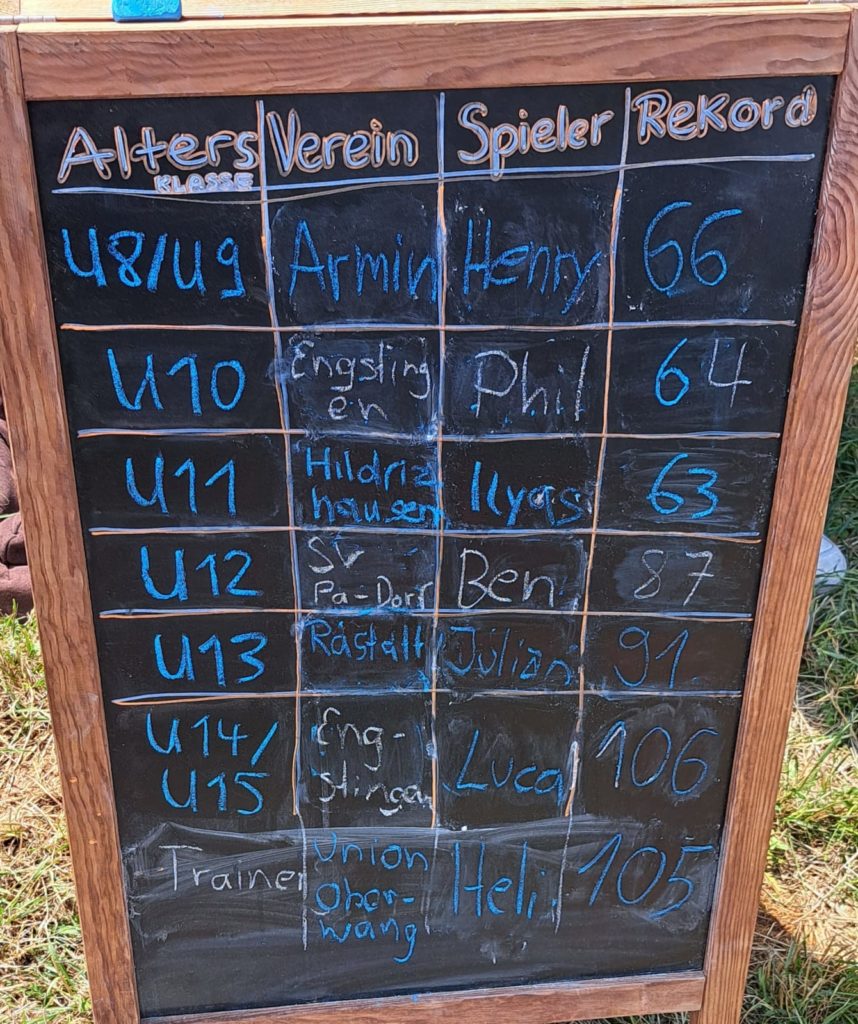 Alters KLASSE Verein Spieler Rekord
U8/U9 Armin Henry 66
U10 Engsling en Phil 64
U11 Hildriz hausen Ilyas 63
U12 SV Pa-Dorf Ben 87
U13 Rastatt Julian 91
U14/ U15 Eng- stingen Luca 106
Trainer Union Ober- wang Heli 105